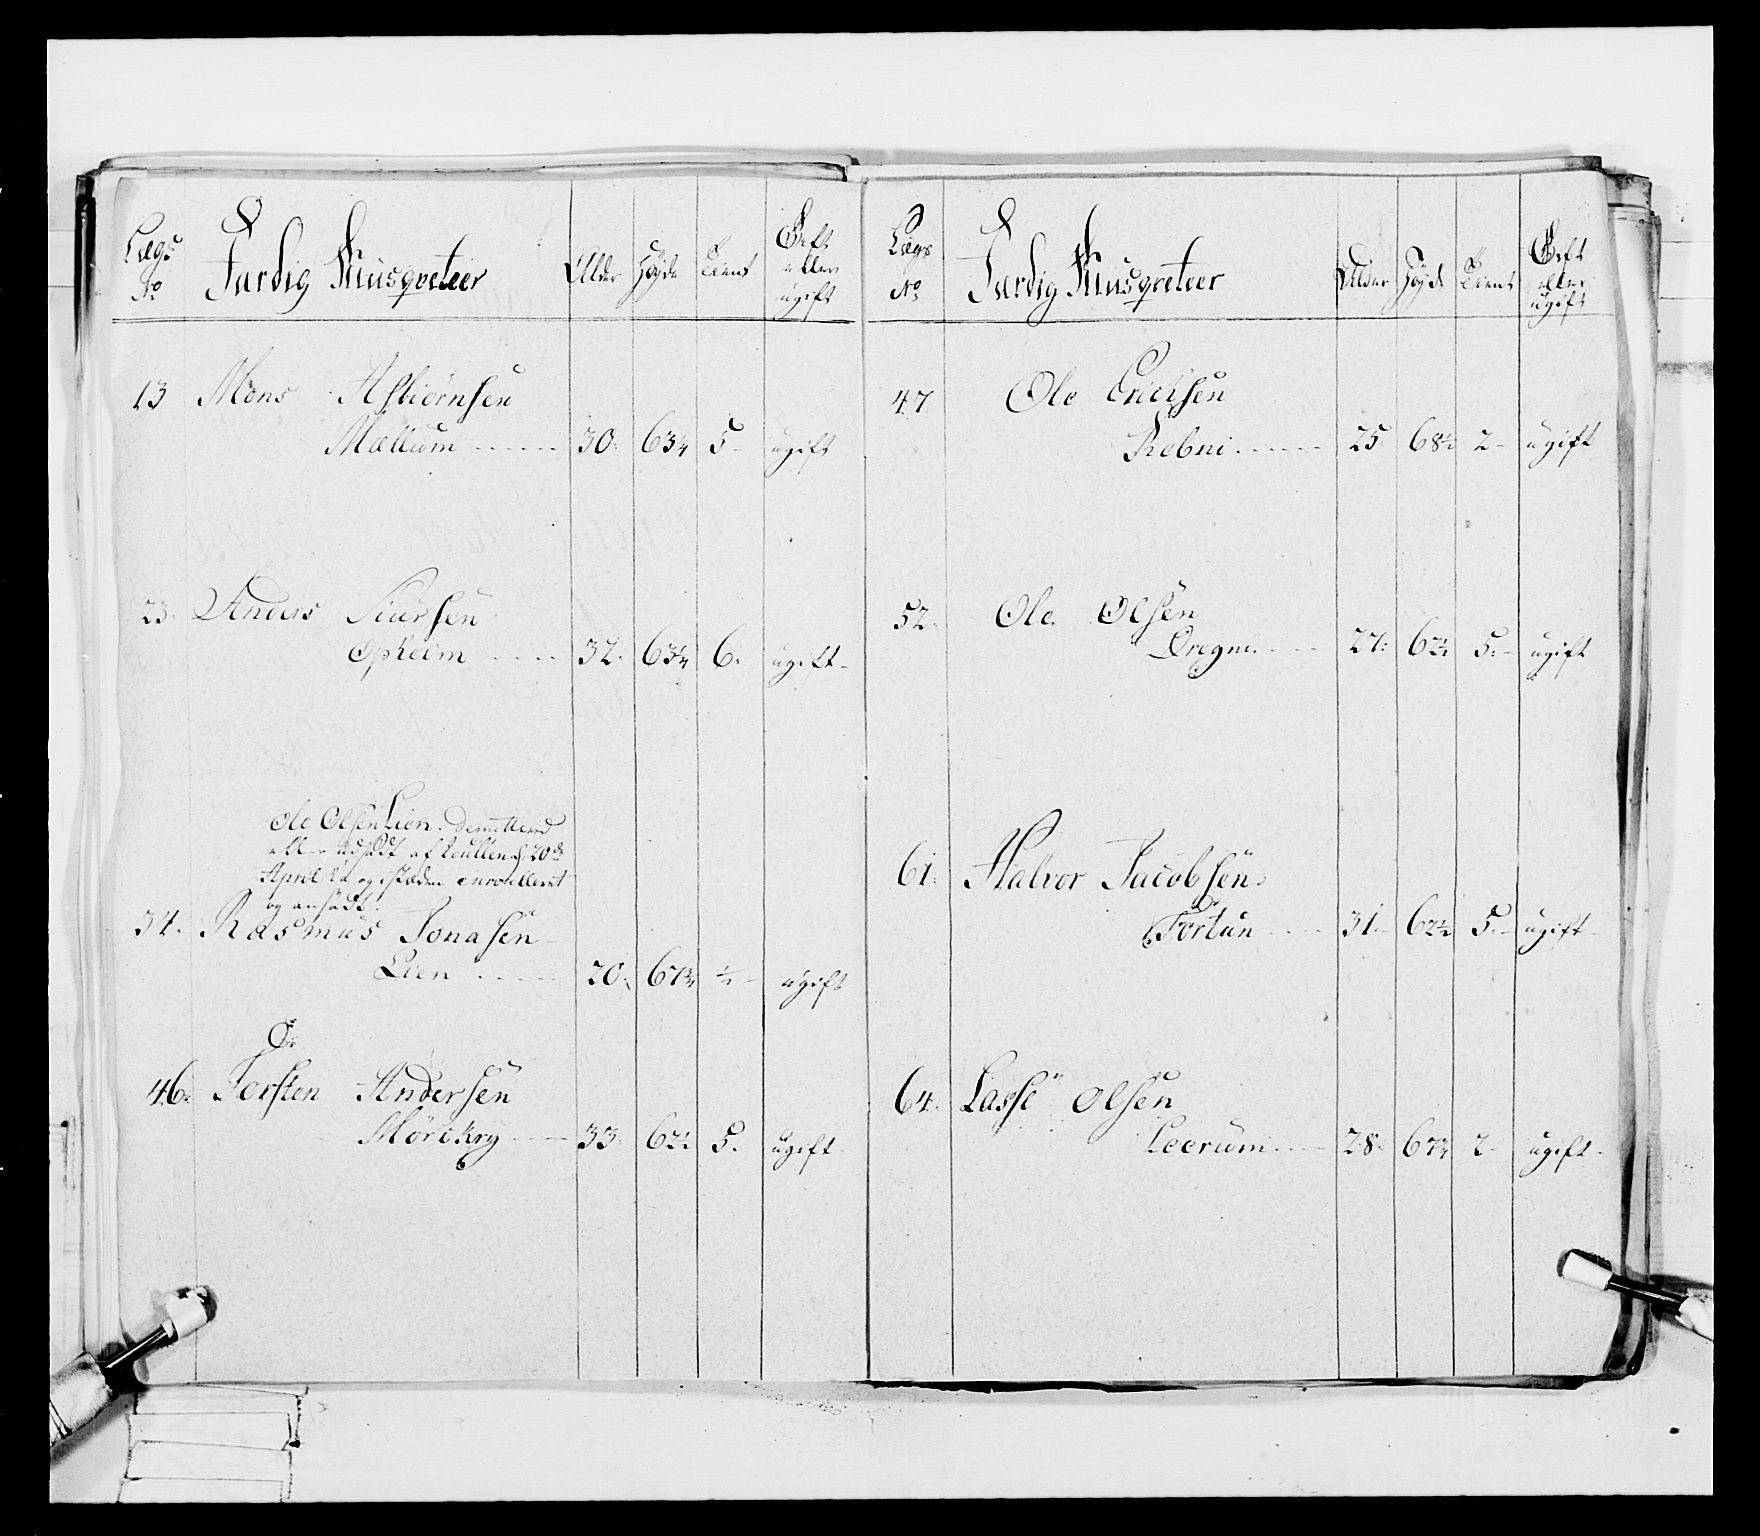 Lægs No Færdig Musqveteer Alder Høyde Tient Gift eller ugift
13 Mons Asbiørnsen
Mællum 30. 63¼ 5 ugift
23. Anders Siursen
Opheim 32. 63¼ 6. ugift
Ole Olsen Lien. Demittered
eller udsadt af Roullen d. 20de
April og istæden enroulleret
og ansadt.
34. Rasmus Jonasen
Lien 20. 67¾ ½ ugift
46. Torsten Andersen
Mørckry 33. 62½ 5. ugift
Lægs No Færdig Musqveteer Alder Høyde Tient Gift eller ugift
47 Ole Erichsen
Rebni 25 68½ 2 ugift
52. Ole Olsen
Dregni 27. 62½ 5. ugift
61. Halvor Jacobsen
Fortun 31. 62½ 5. ugift
64. Lasse Olsen
Leerum 28. 67¼ 2 ugift